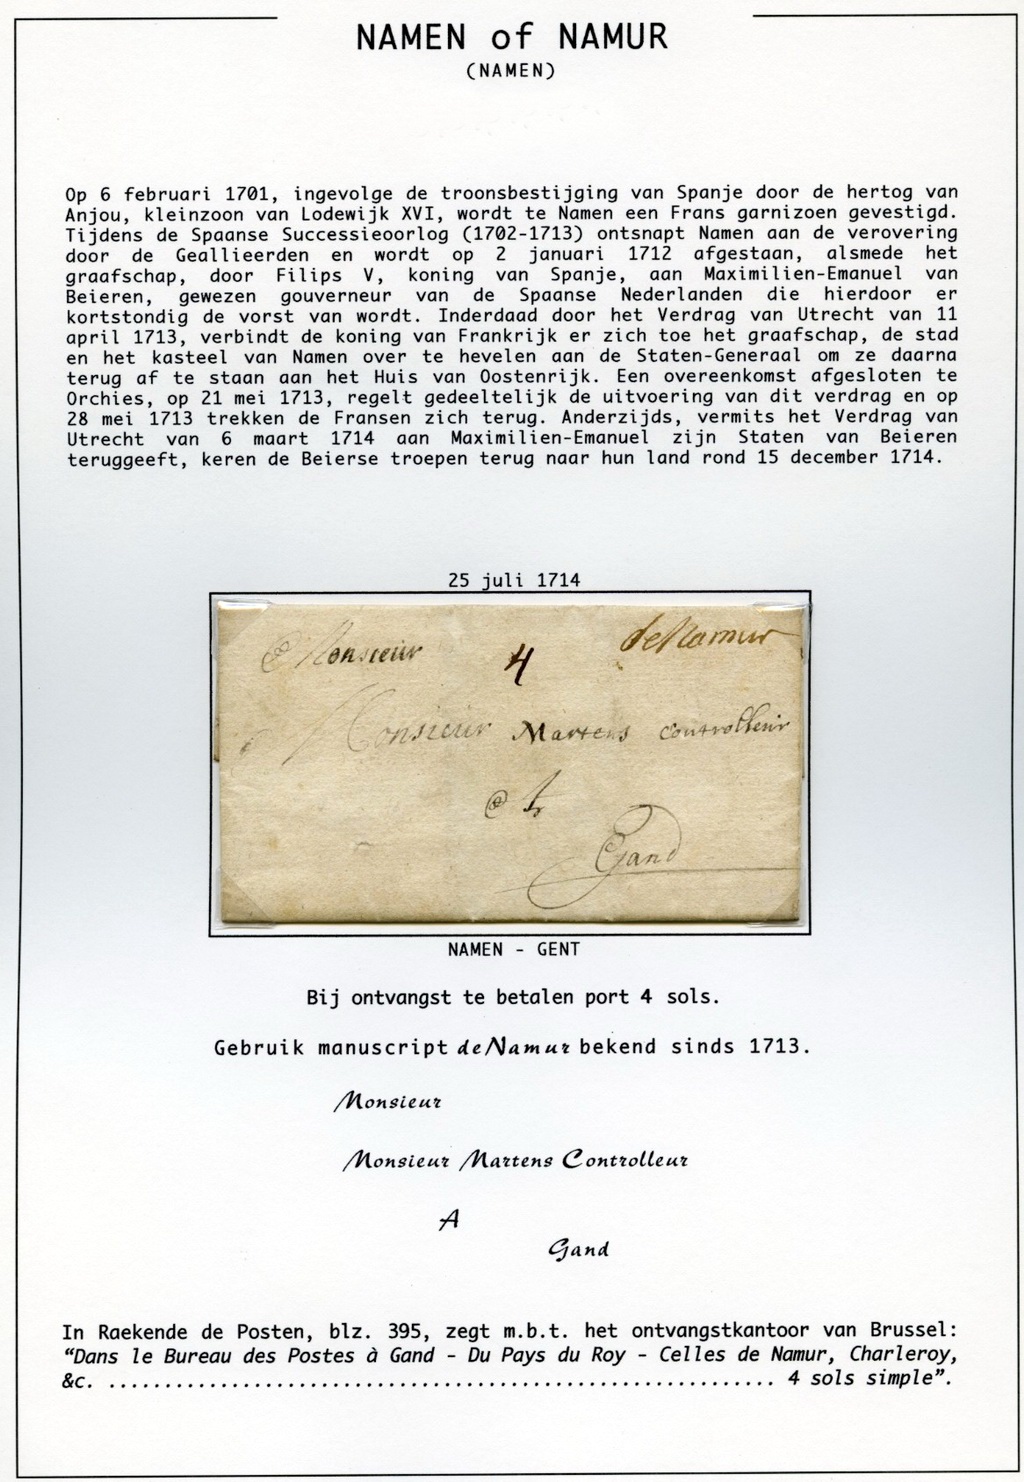 NAMEN of NAMUR
(NAMEN)
Op 6 februari 1701, ingevolge de troonsbestijging van Spanje door de hertog van
Anjou, kleinzoon van Lodewijk XVI, wordt te Namen een Frans garnizoen gevestigd.
Tijdens de Spaanse Successieoorlog (1702-1713) ontsnapt Namen aan de verovering
door de Geallieerden en wordt op 2 januari 1712 afgestaan, alsmede het
graafschap, door Filips V, koning van Spanje, aan Maximilien-Emanuel van
Beieren, gewezen gouverneur van de Spaanse Nederlanden die hierdoor er
kortstondig de vorst van wordt. Inderdaad door het Verdrag van Utrecht van 11
april 1713, verbindt de koning van Frankrijk er zich toe het graafschap, de stad
en het kasteel van Namen over te hevelen aan de Staten-Generaal om ze daarna
terug af te staan aan het Huis van Oostenrijk. Een overeenkomst afgesloten te
Orchies, op 21 mei 1713, regelt gedeeltelijk de uitvoering van dit verdrag en op
28 mei 1713 trekken de Fransen zich terug. Anderzijds, vermits het Verdrag van
Utrecht van 6 maart 1714 aan Maximilien-Emanuel zijn Staten van Beieren
teruggeeft, keren de Beierse troepen terug naar hun land rond 15 december 1714.
25 juli 1714
Monsieur 4 de Namur
Monsieur Martens controlleur
Gand
NAMEN - GENT
Bij ontvangst te betalen port 4 sols.
Gebruik manuscript de Namur bekend sinds 1713.
Monsieur
Monsieur Martens Controlleur
A
Gand
In Raekende de Posten, blz. 395, zegt m.b.t. het ontvangstkantoor van Brussel:
“Dans le Bureau des Postes à Gand - Du Pays du Roy - Celles de Namur, Charleroy,
&c. ........................................................... 4 sols simple”.